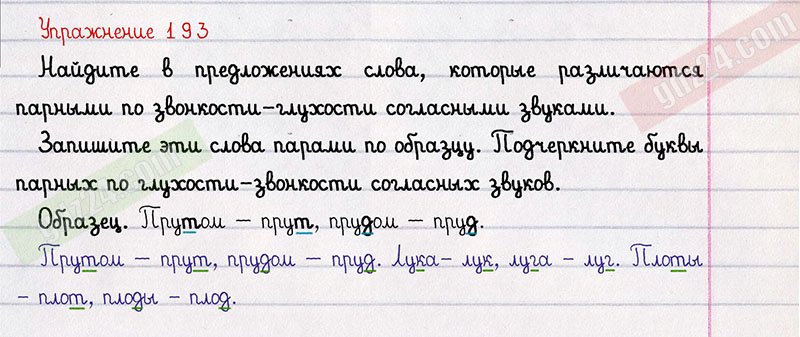 Упражнение 193
Найдите в предложениях слова, которые различаются
парными по звонкости-глухости согласными звуками.
Запишите эти слова парами по образцу. Подчеркните буквы
парных по глухости-звонкости согласных звуков.
Образец. Прутом – прут, прудом – пруд.
Прутом – прут, прудом – пруд. Лука- лук, луга - луг. Плоты
- плот, плоды - плод.
gdz24.com
gdz24.com